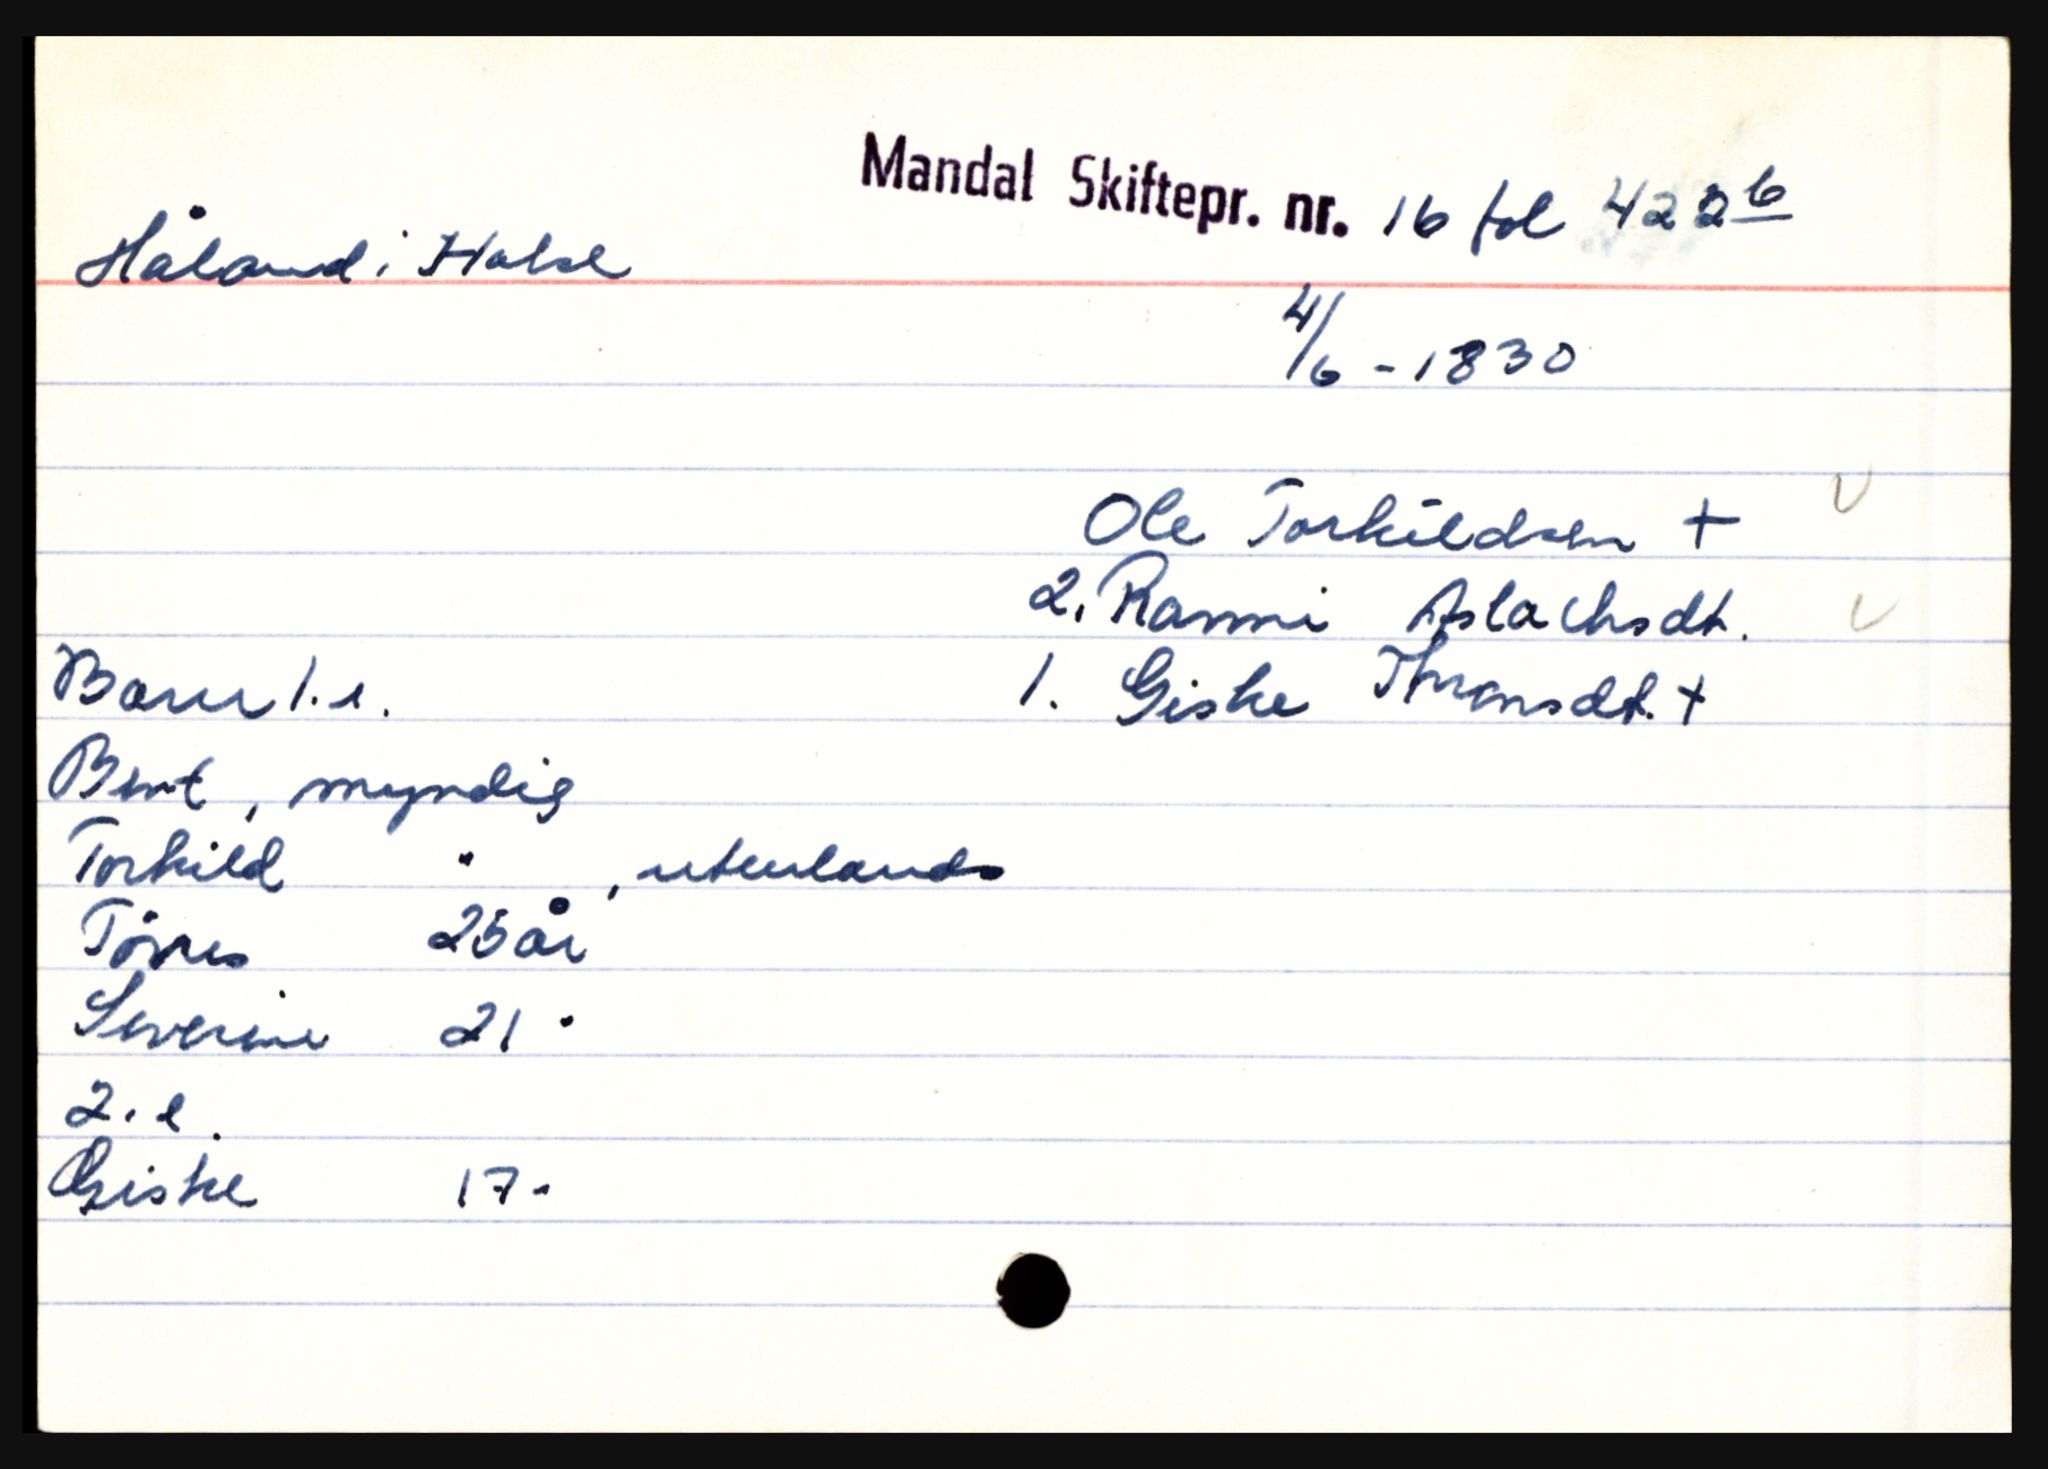 Mandal Skiftepr. nr. 16 fol 422b
Håland i Halse
4/6 - 1830
Ole Torkildsen +
2. Ranni Aslachsdt.
Barn 1. e.
1. Giske Thronsdt. +
Bent, myndig
Torkild " , utenlands
Tørres 25 år
Severine 21 "
2. e.
Giske 17 -